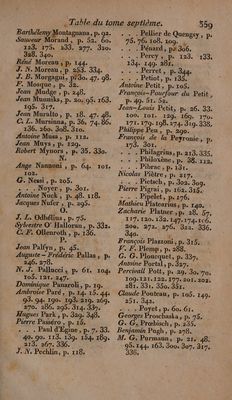 Table du tome septième. 559
Barthélemy Montagnana, p. 92.
Sauveur Morand, p. 52. 60.
123. 175. 233. 277. 320.
328. 340.
René Moreau, p. 144.
J. N. Moreau, p. 253. 334.
J. B. Morgagni, p. 30. 47. 98.
F. Mosque, p. 32.
Jean Mudge, p. 248.
Jean Munniks, p. 20. 95. 163.
195. 317.
Jean Muralto, p. 18. 47. 48.
C. L. Mursinna, p. 36. 74. 86.
136. 260. 308. 310.
Antoine Musa, p. 112.
Jean Muys, p. 129.
Robert Mynors, p. 35. 330.
N.
Ange Nannoni, p. 64. 101.
102.
G. Nessi, p. 205.
. . . Noyer, p. 301.
Antoine Nuck, p. 48. 118.
Jacques Nufer, p. 295.
O.
J. L. Odhelius, p. 75.
Sylvestre O' Halloran, p. 332.
C. F. Ollenroth, p. 136.
P.
Jean Palfyn, p. 45.
Auguste-Frédéric Pallas, p.
246. 278.
N. J. Pallucci, p. 61. 104.
105. 121. 247.
Dominique Panaroli, p. 19.
Ambroise Paré, p. 14. 15. 44.
93. 94. 190. 193. 219. 269.
270. 286. 295. 314. 337.
Hugues Park, p. 329. 348.
Pierre Passéro, p. 16.
. . . Paul d'Égine, p. 7. 33.
40. 90. 113. 139. 154. 189.
213. 267. 336.
J. N. Pechlin, p. 118.
. . . Pellier de Quengsy, p.
75. 76. 108. 209.
. . . Pénard, p. 306.
. . . Percy, p. 123. 133.
134. 149. 281.
. . . Perret, p. 344.
. . . Petiot, p. 135.
Antoine Petit, p. 105.
François-Pourfour du Petit,
p. 49. 51. 52.
Jean-Louis Petit, p. 26. 33.
100. 101. 129. 169. 170.
171. 179. 198. 274. 319. 338.
Philippe Peu, p. 290.
François de la Peyronie, p.
173. 301.
. . . Philagrius, p. 213. 335.
. . . Philoxène, p. 38. 112.
. . . Pibrac, p. 131.
Nicolas Piètre, p. 217.
. . . Pietsch, p. 302. 309.
Pierre Pigrai, p. 162. 315.
. . . Pipelet, p. 176.
Mathieu Platearius, p. 140.
Zacharie Platner, p. 28. 57.
117. 120. 132. 147. 174. 176.
200. 272. 276. 322. 336.
340.
François Plazzoni, p. 315.
F. F. Plemp, p. 288.
G. G. Ploucquet, p. 337.
Antoine Portal, p. 327.
Percivall Pott, p. 29. 30. 70.
109. 121. 122. 177. 201. 202.
281. 331. 350. 351.
Claude Pouteau, p. 105. 149.
251. 342.
. . . Poyet, p. 60. 61.
Georges Prochaska, p. 75.
G. G. Prœbisch, p. 235.
Benjamin Pugh, p. 278.
M. G. Purmann, p. 21. 48.
95. 144. 163. 300. 307. 317.
338.